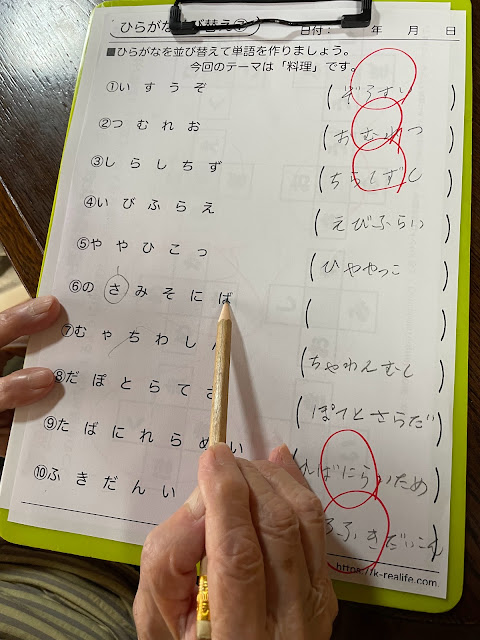 ひらがな並び替え②
日付: 年 月 日
■ひらがなを並び替えて単語を作りましょう。
今回のテーマは「料理」です。
①いすうぞ (ぞうすい)
②つむれお (おむれつ)
③しらしちず (ちらしずし)
④いびふらえ (えびふらい)
⑤ややひこっ (ひややっこ)
⑥のさみそにば ( )
⑦むゃちわし (ちゃわんむし)
⑧だぽとらてさ (ぽてとさらだ)
⑨たばにれらめい ればにらいため)
⑩ふきだんい ろふきだいこん
https://k-realife.com